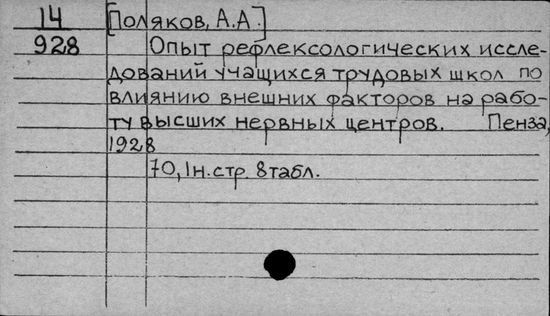 14 [Поляков, А.А.]
928 Опыт рефлексологических иссле-
дований учащихся трудовых школ по
влиянию внешних факторов на рабо-
ту высших нервных центров. Пенза,
1928
70, 1н. стр. 8 табл.